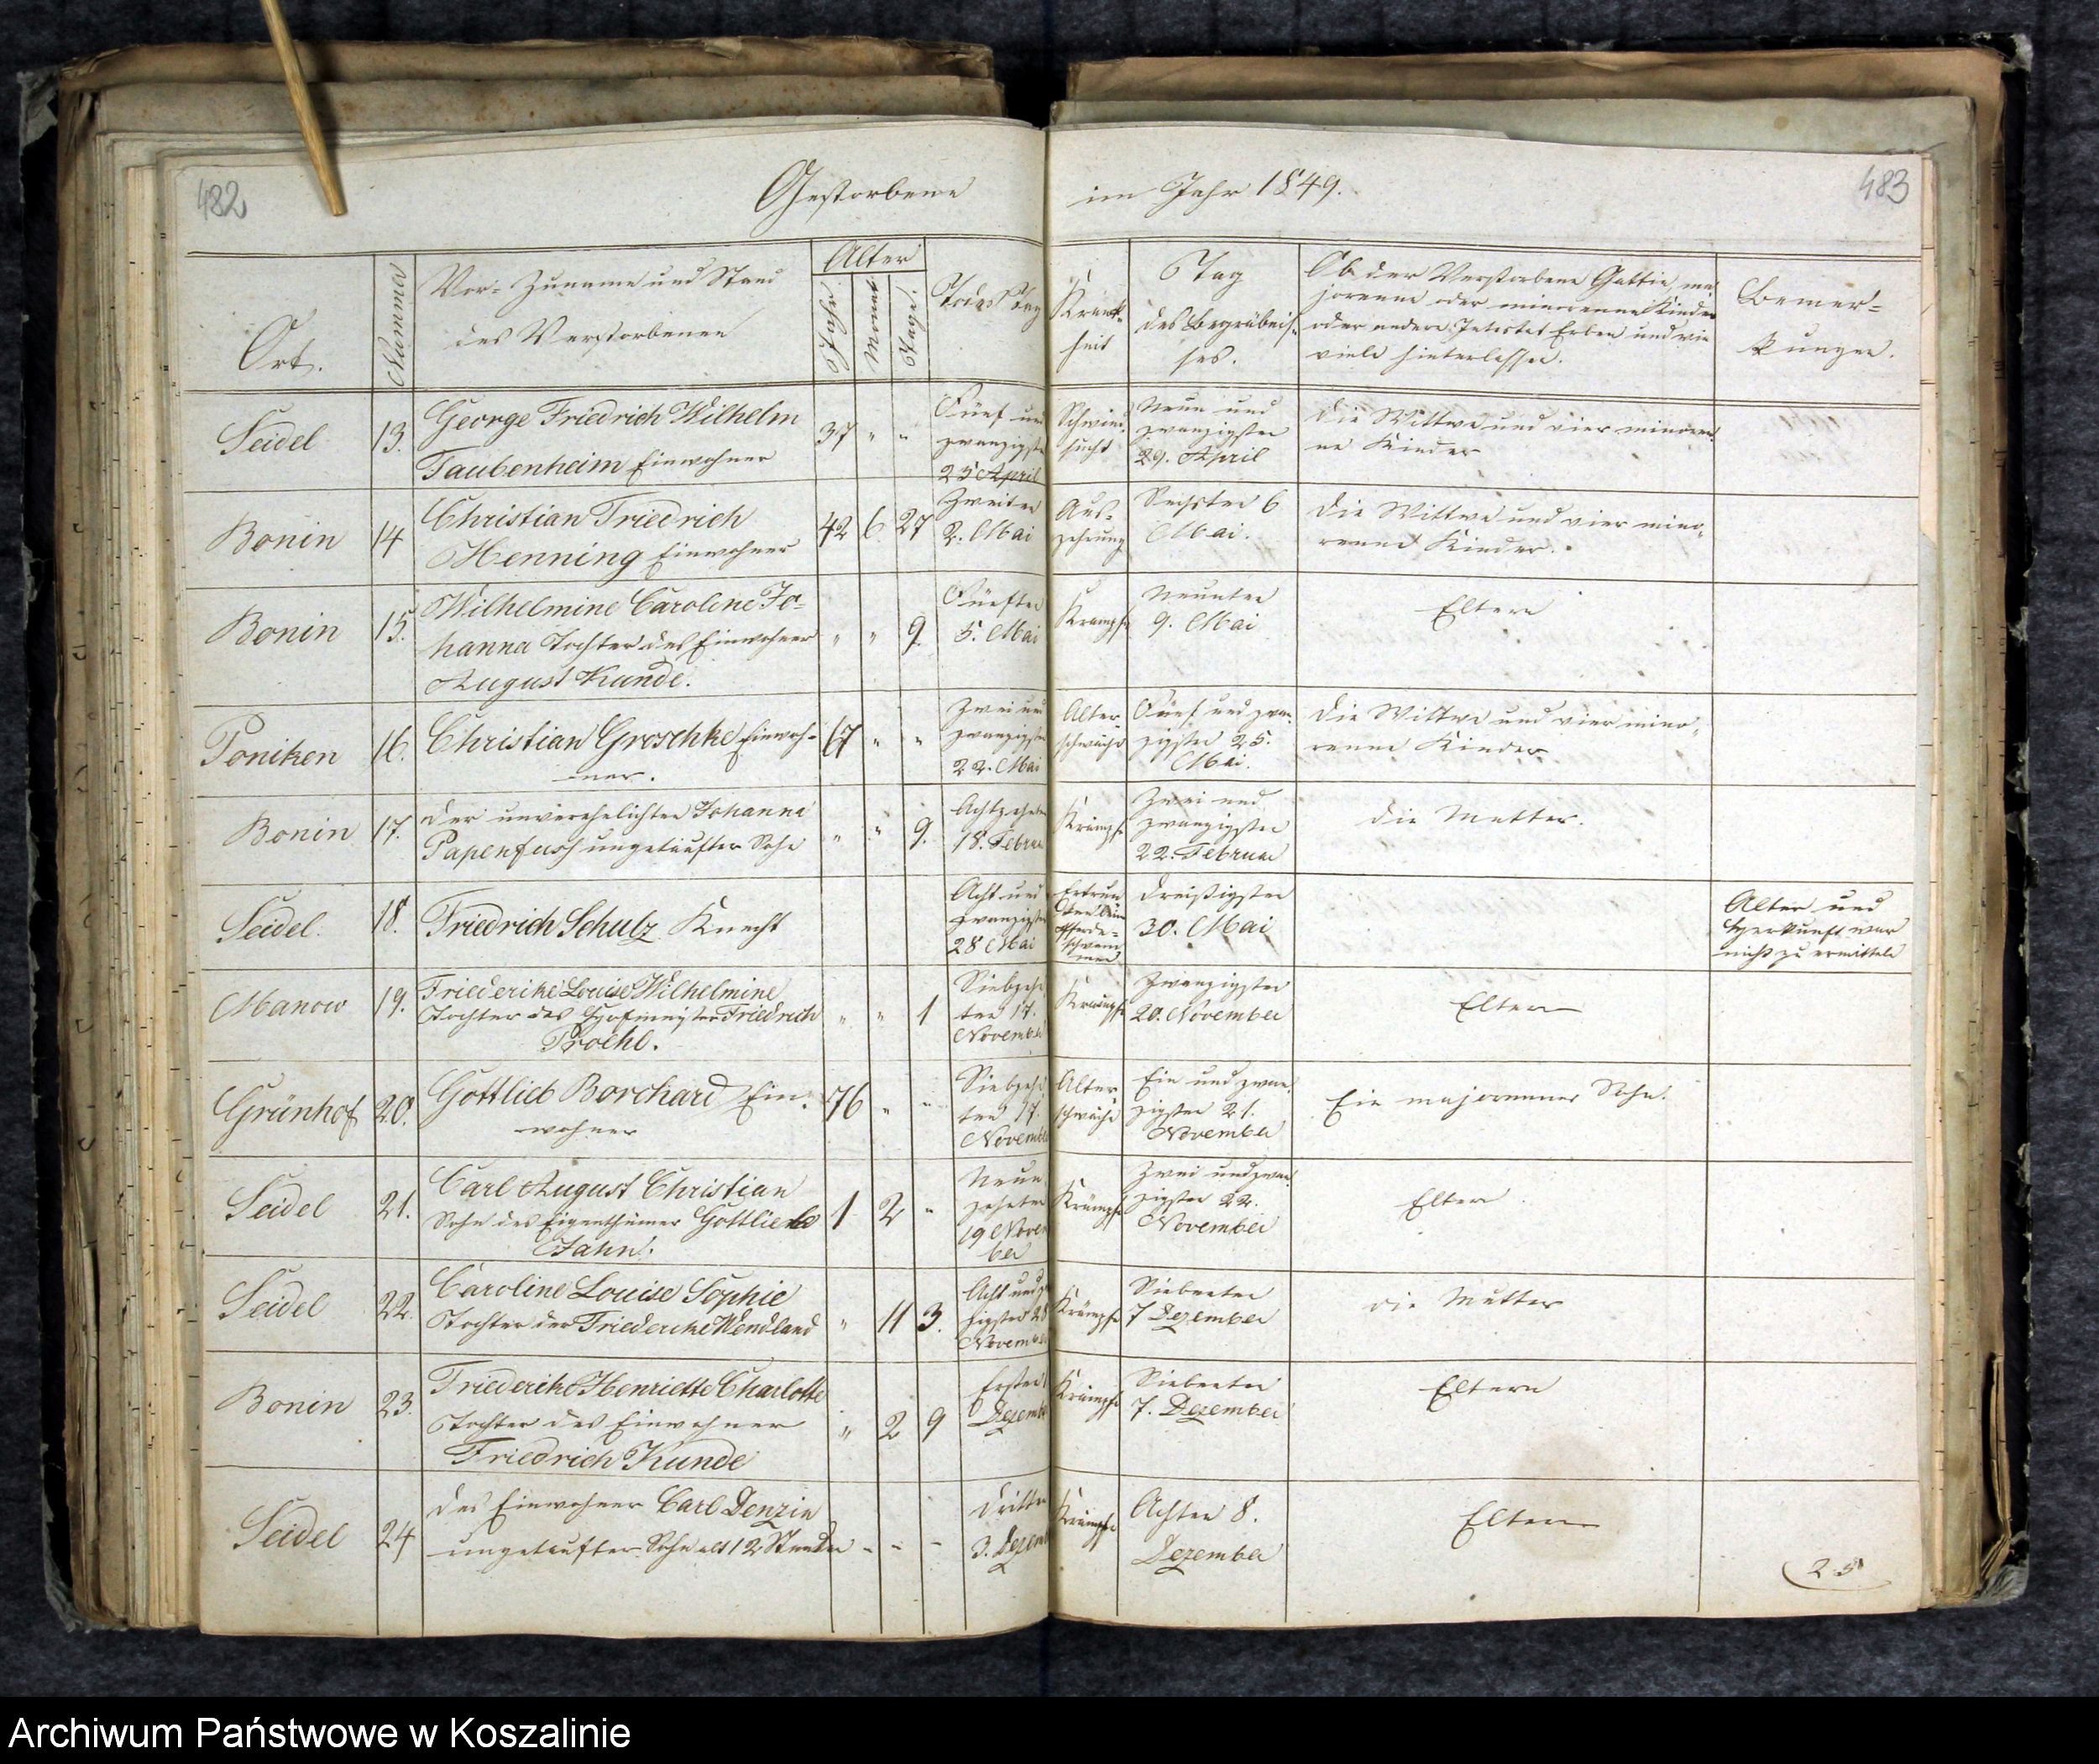 482
Gestorbene
im Jahr 1849.
483
Ort.
Nummer
Vor- Zuname und Stand
des Verstorbenen
Alter
Jahr
Monat
Tage.
Todes Tag
Krank-
heit
Tag
des Begräbnis-
ses.
Ob der Verstorbene Gattin, ma
jorenne oder minorenne Kinder
oder andere Intestat Erben und wie
viele hinterlassen.
Bemer-
kungen.
Seidel
13.
George Friedrich Wilhelm
Taubenheim Einwohner
37 " "
Fünf und
zwanzigste
25 April
Schwind
sucht
Neun und
zwanzigsten
29. April
die Wittwe und vier minoren
ne Kinder
Bonin
14
Christian Friedrich
Henning Einwohner
42 6 27
Zweiten
2. Mai
Aus-
zehrung
Sechsten 6
Mai.
die Wittwe und vier mino-
renne Kinder.
Bonin
15.
Wilhelmine Caroline Jo-
hanna Tochter des Einwohner
August Kunde.
" " 9.
Fünften
5. Mai
Krampfe
Neunten
9. Mai
Eltern
Poniken
16.
Christian Groschke Einwoh-
ner.
67 " "
Zwei und
zwanzigsten
22. Mai
Alter-
schwäche
Fünf und zwan-
zigsten 25.
Mai.
die Wittwe und vier mino-
renne Kinder
Bonin
17.
der unverehelichten Johanna
Papenfusz ungetaufter Sohn
" " 9.
Achtzehnten
18. Februa
Krämpfe
Zwei und
zwanzigsten
22. Februar
die Mutter.
Seidel.
18.
Friedrich Schulz Knecht
Acht und
zwanzigsten
28 Mai
Ertrun
ken beim
Pferde-
schwem
men
dreißigsten
30. Mai
Alter und
Herkunft war
nicht zu ermitteln
Manow
19.
Friedericke Louise Wilhelmine
Tochter des Hofmeister Friedrich
Proehl.
" " 1
Siebzehn
ten 17.
November
Krämpfe
Zwanzigsten
20. November
Eltern
Grünhof
20.
Gottlieb Borchard Ein-
wohner
76 " "
Siebzehn
ten 17.
November
Alter
schwäche
Ein und zwan-
zigsten 21.
November
Ein majorenner Sohn.
Seidel
21.
Carl August Christian
Sohn des Eigenthümer Gottlieb
Jahn.
1 2 "
Neun
zehnten
19 Novem
ber
Krämpfe
Zwei und zwan
zigsten 22.
November
Eltern
Seidel
22.
Caroline Louise Sophie
Tochter der Friedericke Wendland
" 11 3.
Acht und zw
zigsten 28
November
Krämpfe
Siebenten
7 Dezember
die Mutter
Bonin
23.
Friedericke Henriette Charlotte
Tochter des Einwohner
Friedrich Kunde
" 2 9
Ersten
Dezember
Krämpfe
Siebenten
7. Dezember
Eltern
Seidel
24
des Einwohner Carl Denzin
ungetaufter Sohn alt 12 Stunden
- - -
dritten
3. Dezemb
Krämpfe
Achten 8.
Dezember
Eltern
25
Archiwum Państwowe w Koszalinie